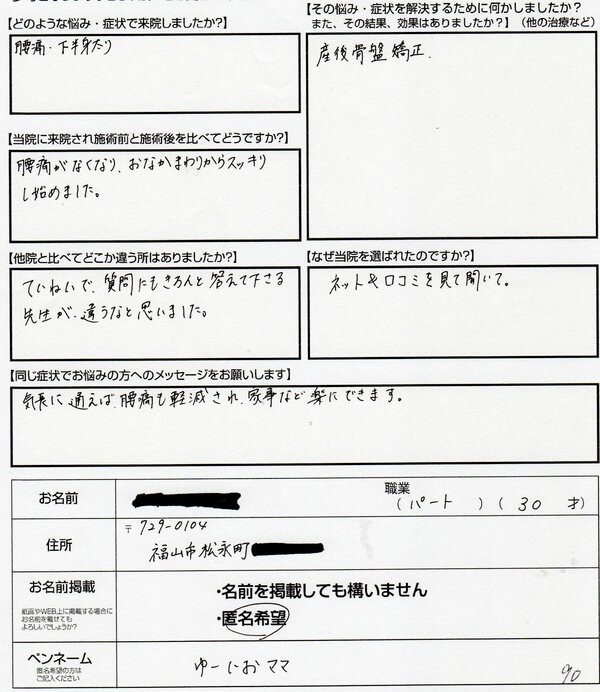 【どのような悩み・症状で来院しましたか?】
腰痛・下半身太り
【その悩み・症状を解決するために何かしましたか?
また、その結果、効果はありましたか?】（他の治療など）
産後骨盤矯正.
【当院に来院され施術前と施術後を比べてどうですか?】
腰痛がなくなり、おなかまわりからスッキリ
し始めました。
【他院と比べてどこか違う所はありましたか?】
ていねいで、質問にもきちんと答えて下さる
先生が、違うなと思いました。
【なぜ当院を選ばれたのですか?】
ネットや口コミを見て聞いて。
【同じ症状でお悩みの方へのメッセージをお願いします】
気長に通えば、腰痛も軽減され、家事など楽にできます。
お名前
職業
（パート　）（30　才）
住所
〒729-0104
福山市松永町
お名前掲載
紙面やWEB上に掲載する場合に
お名前を載せても
よろしいでしょうか?
・名前を掲載しても構いません
・匿名希望
ペンネーム
匿名希望の方は
ご記入ください
ゆーにおママ
90